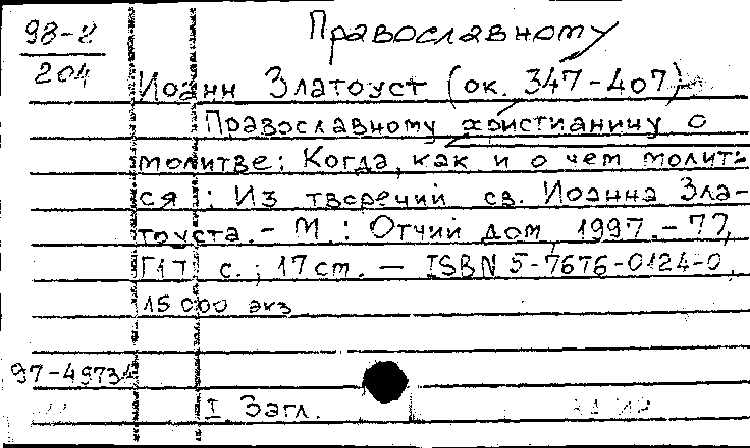 Православному
98-2
204
Иоанн Златоуст (ок. 347-407)
Православному христианину о
молитве: Когда, как и о чем молить-
ся : Из творений св. Иоанна Зла-
тоуста. - М.: Отчий дом, 1997. - 77,
[1] с. ; 17 см. — ISBN 5-7676-0124-0,
15 000 экз
97-49734
I Загл.